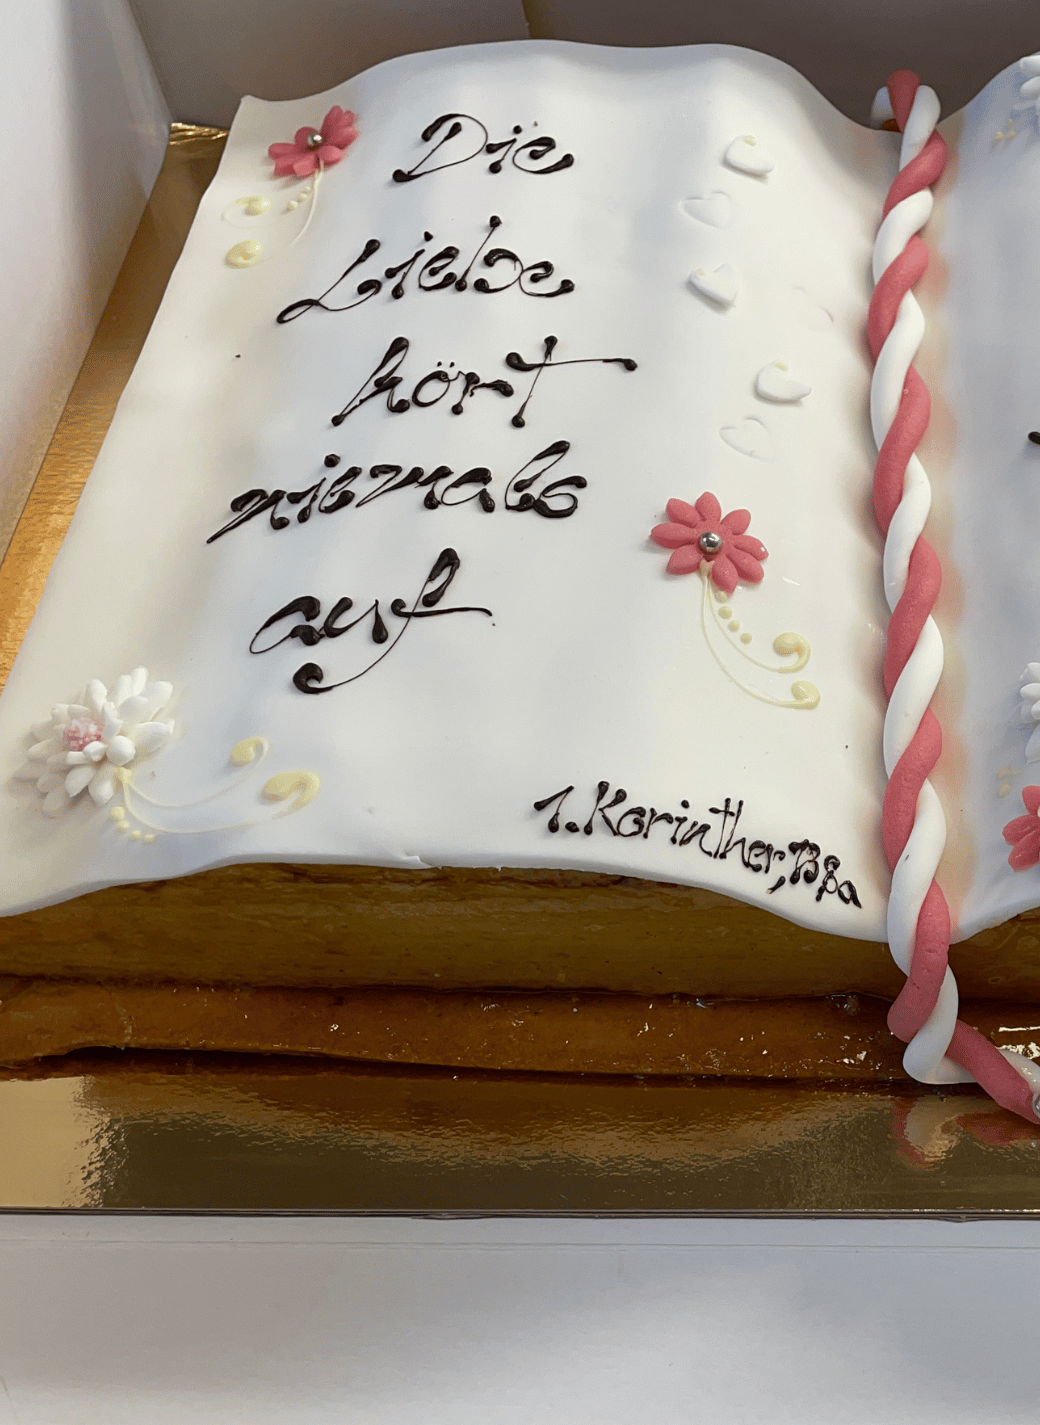 Die
Liebe
hört
niemals
auf
1. Korinther, 13 8a